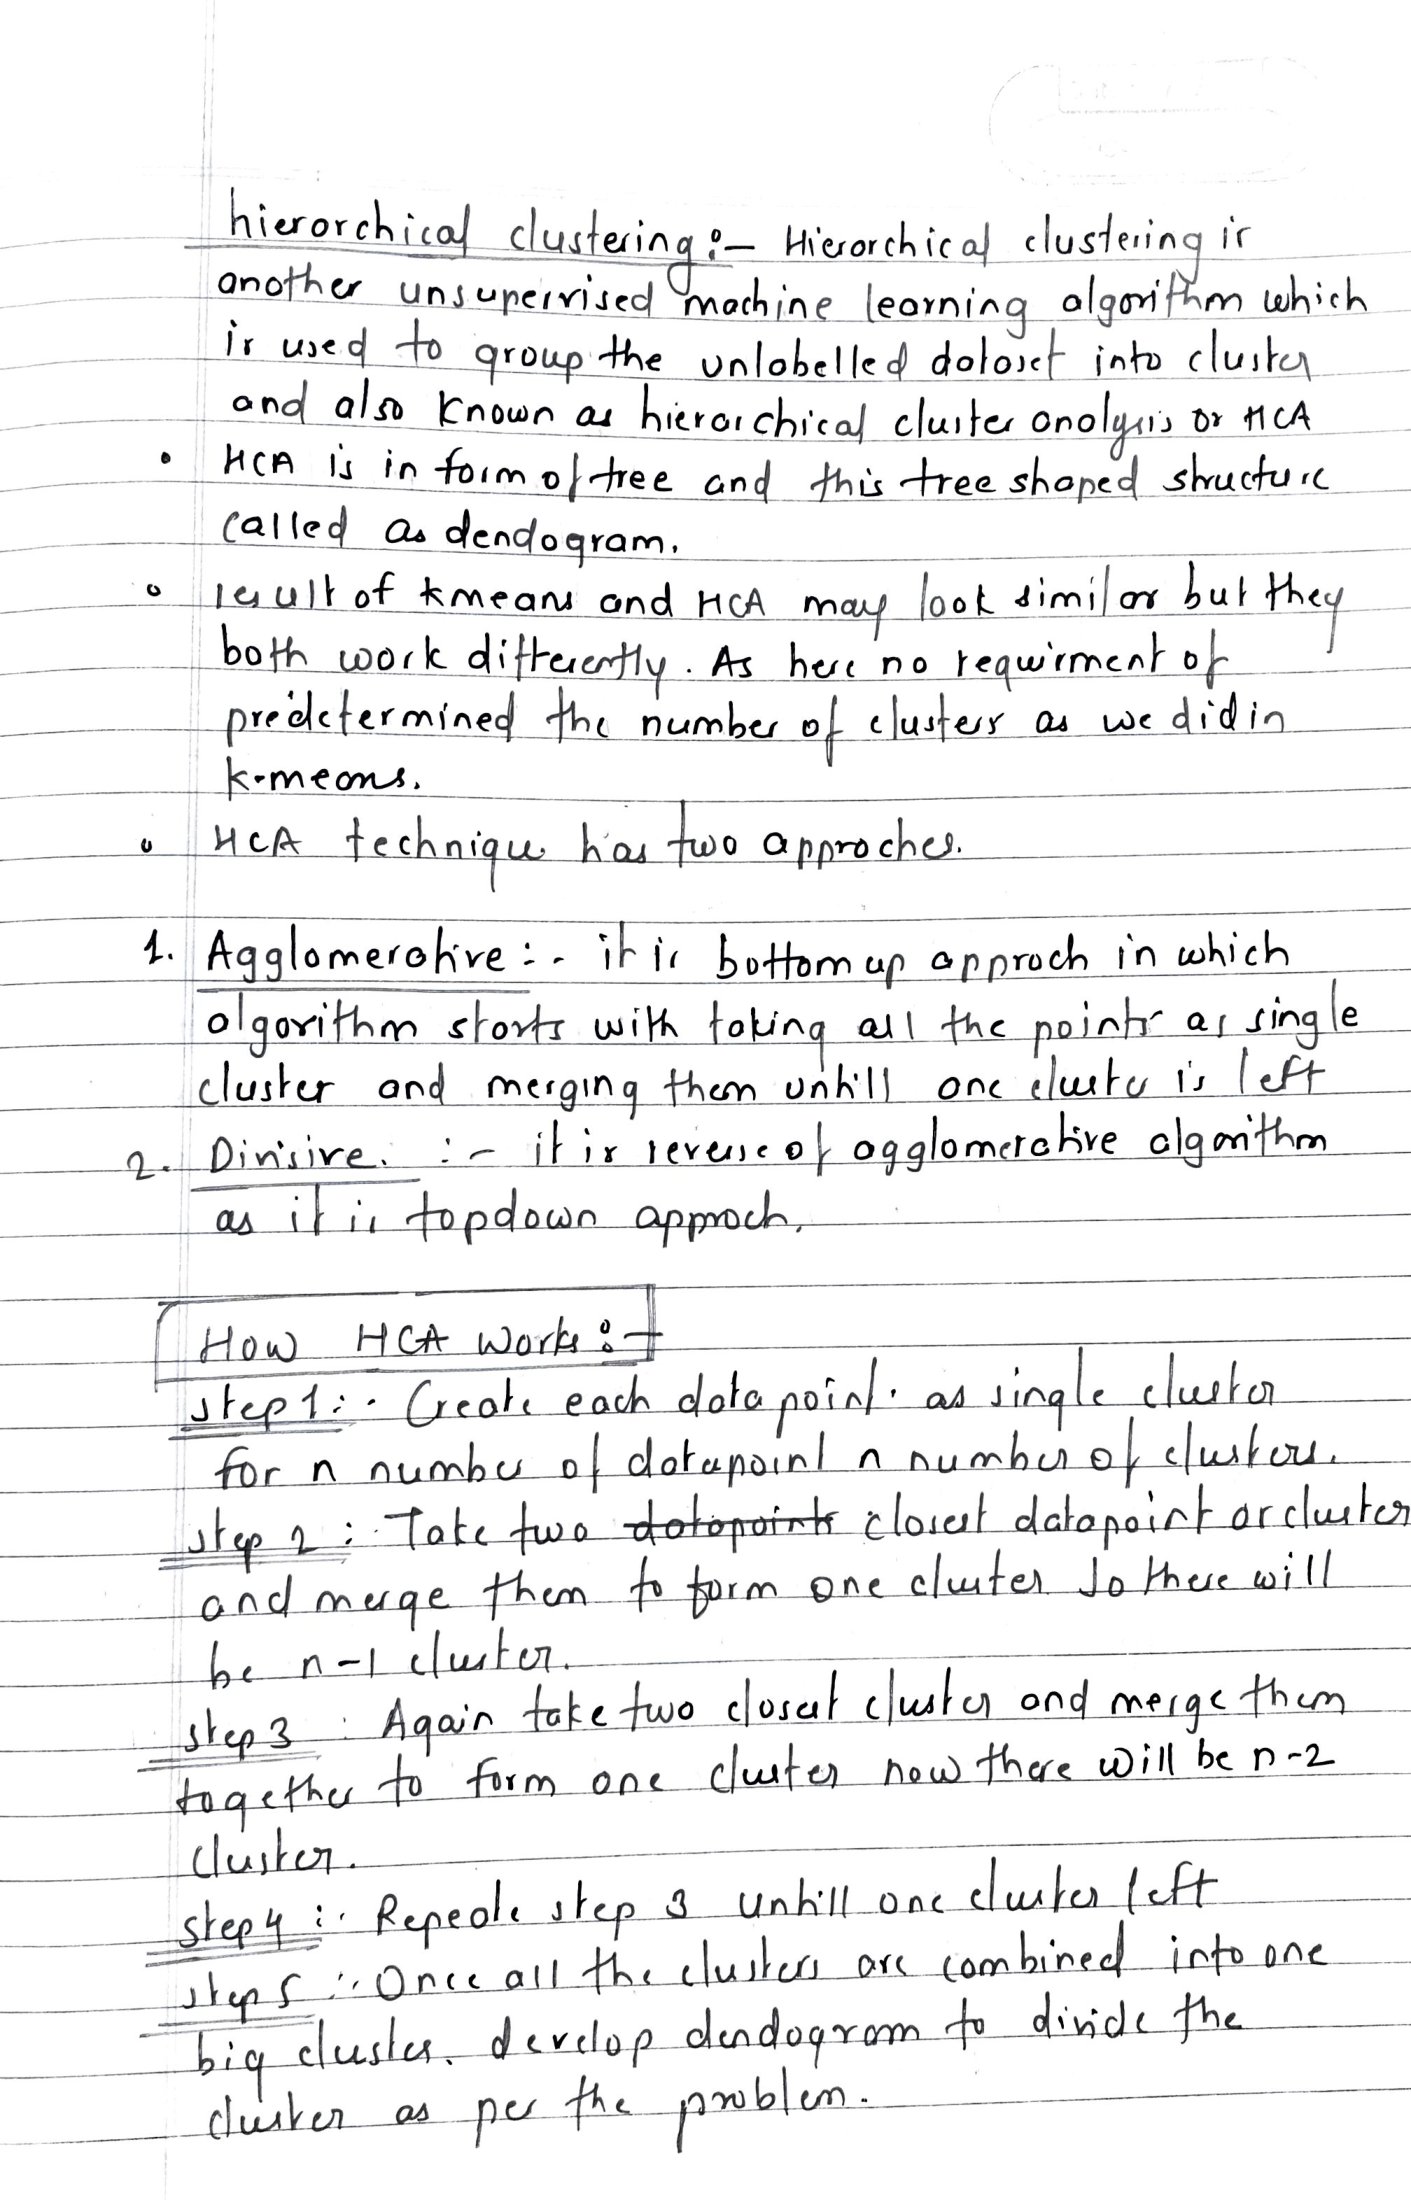 hierarchical clustering :- Hierarchical clustering is
another unsupervised machine learning algorithm which
is used to group the unlabelled dataset into cluster
and also known as hierarchical cluster analysis or HCA
• HCA is in form of tree and this tree shaped structure
called as dendogram.
• result of kmeans and HCA may look similar but they
both work differently. As here no requirment of
predetermined the number of clusters as we did in
k-means.
• HCA technique has two approches.
1. Agglomerative :- it is bottom up approch in which
algorithm starts with taking all the points as single
cluster and merging them untill one cluster is left
2. Divisive. :- it is reverse of agglomerative algorithm
as it is topdown approch.
How HCA works :-
step 1 :- Create each data point as single cluster
for n number of datapoint n number of clusters.
step 2 :- Take two datapoints closest datapoint or cluster
and merge them to form one cluster so there will
be n-1 cluster.
step 3 : Again take two closest cluster and merge them
together to form one cluster now there will be n-2
cluster.
step 4 :- Repeate step 3 untill one cluster left
step 5 :- Once all the clusters are combined into one
big cluster. develop dendogram to divide the
cluster as per the problem.